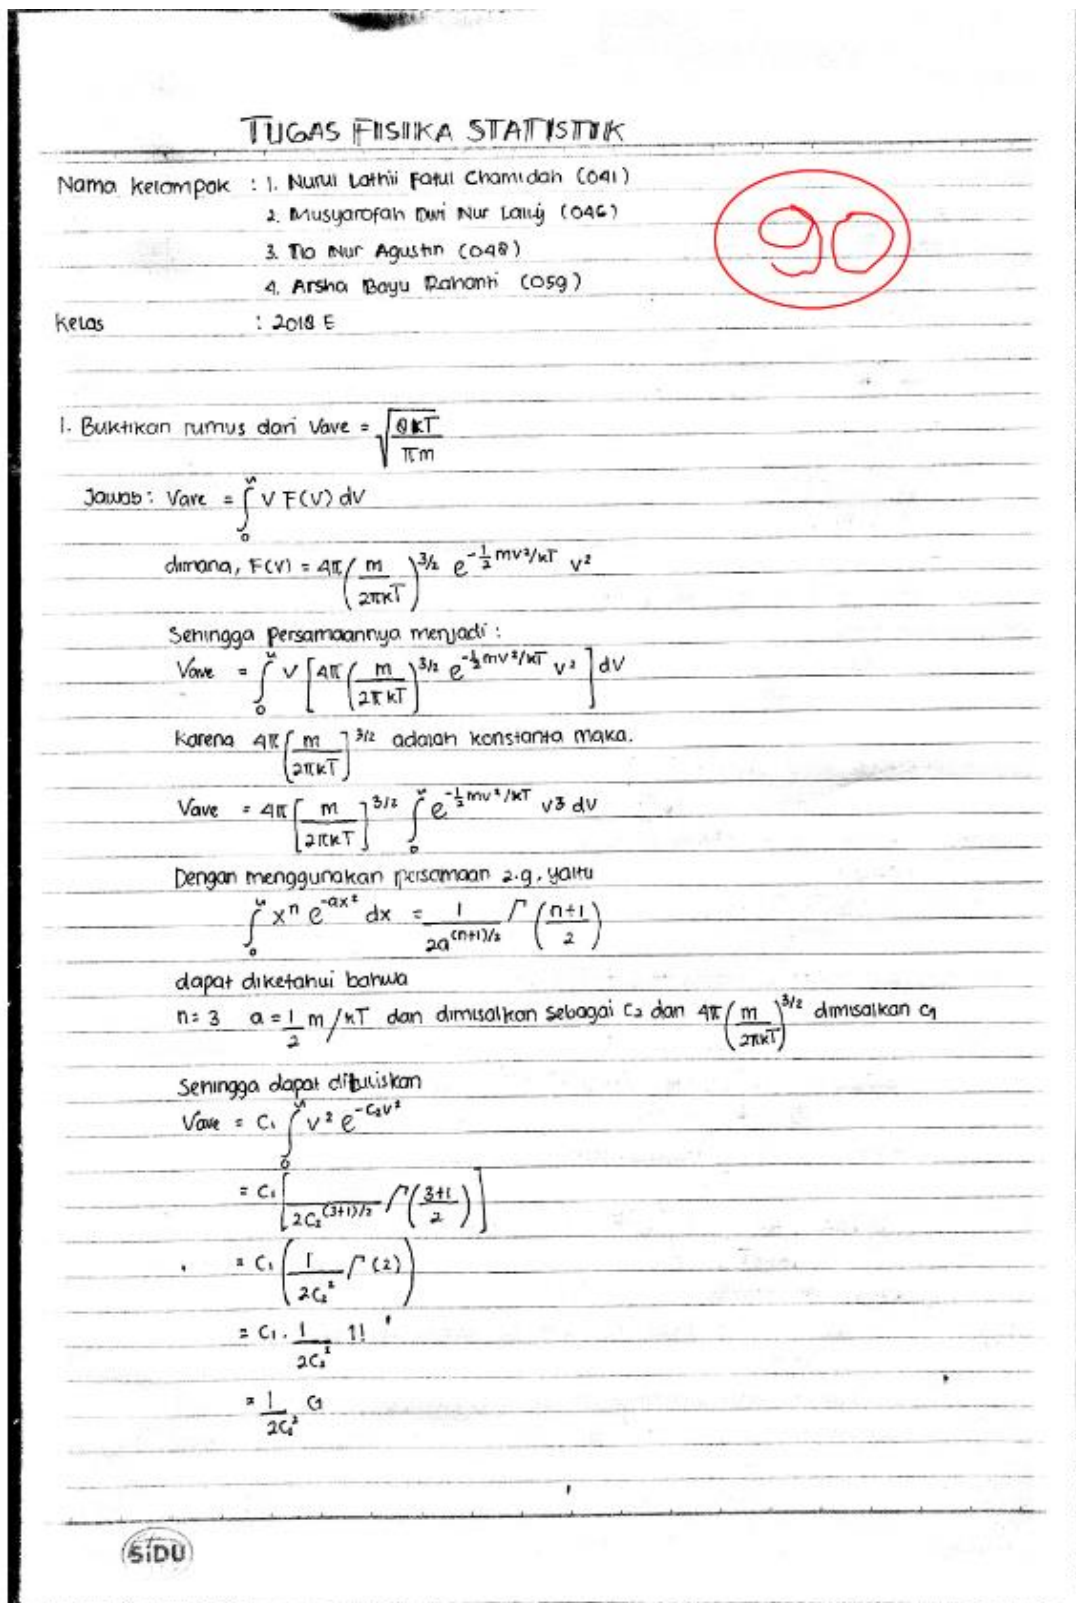 TUGAS FISIKA STATISTIK
Nama kelompok : 1. Nurul Lathii Fatul Chamidah (041)
2. Musyarofah Dwi Nur Laily (046)
3. Tio Nur Agustin (048)
4. Arsha Bayu Rahanti (059)
90
Kelas : 2018 E
1. Buktikan rumus dari Vave = √(8kT/πm)
Jawab : Vave = ∫₀~ V F(V) dV
dimana, F(V) = 4π (m/2πkT)^3/2 e^(-1/2 mv²/kT) v²
Sehingga persamaannya menjadi :
Vave = ∫₀~ V [4π (m/2πkT)^3/2 e^(-1/2 mv²/kT) v²] dV
Karena 4π (m/2πkT)^3/2 adalah konstanta maka.
Vave = 4π [m/2πkT]^3/2 ∫₀~ e^(-1/2 mv²/kT) v3 dv
Dengan menggunakan persamaan 2.9. yaitu
∫₀~ x^n e^(-ax²) dx = 1/2a^((n+1)/2) Γ ((n+1)/2)
dapat diketahui bahwa
n= 3 a = 1/2 m/kT dan dimisalkan sebagai C₂ dan 4π (m/2πkT)^3/2 dimisalkan C₁
Sehingga dapat dituliskan
Vave = C₁ ∫₀~ v² e^(-C₂v²)
= C₁ [1/2C₂^((3+1)/2) Γ((3+1)/2)]
= C₁ (1/2C₂² Γ(2))
= C₁ . 1/2C₂² 1!
= 1/2C₂² C₁
SiDU